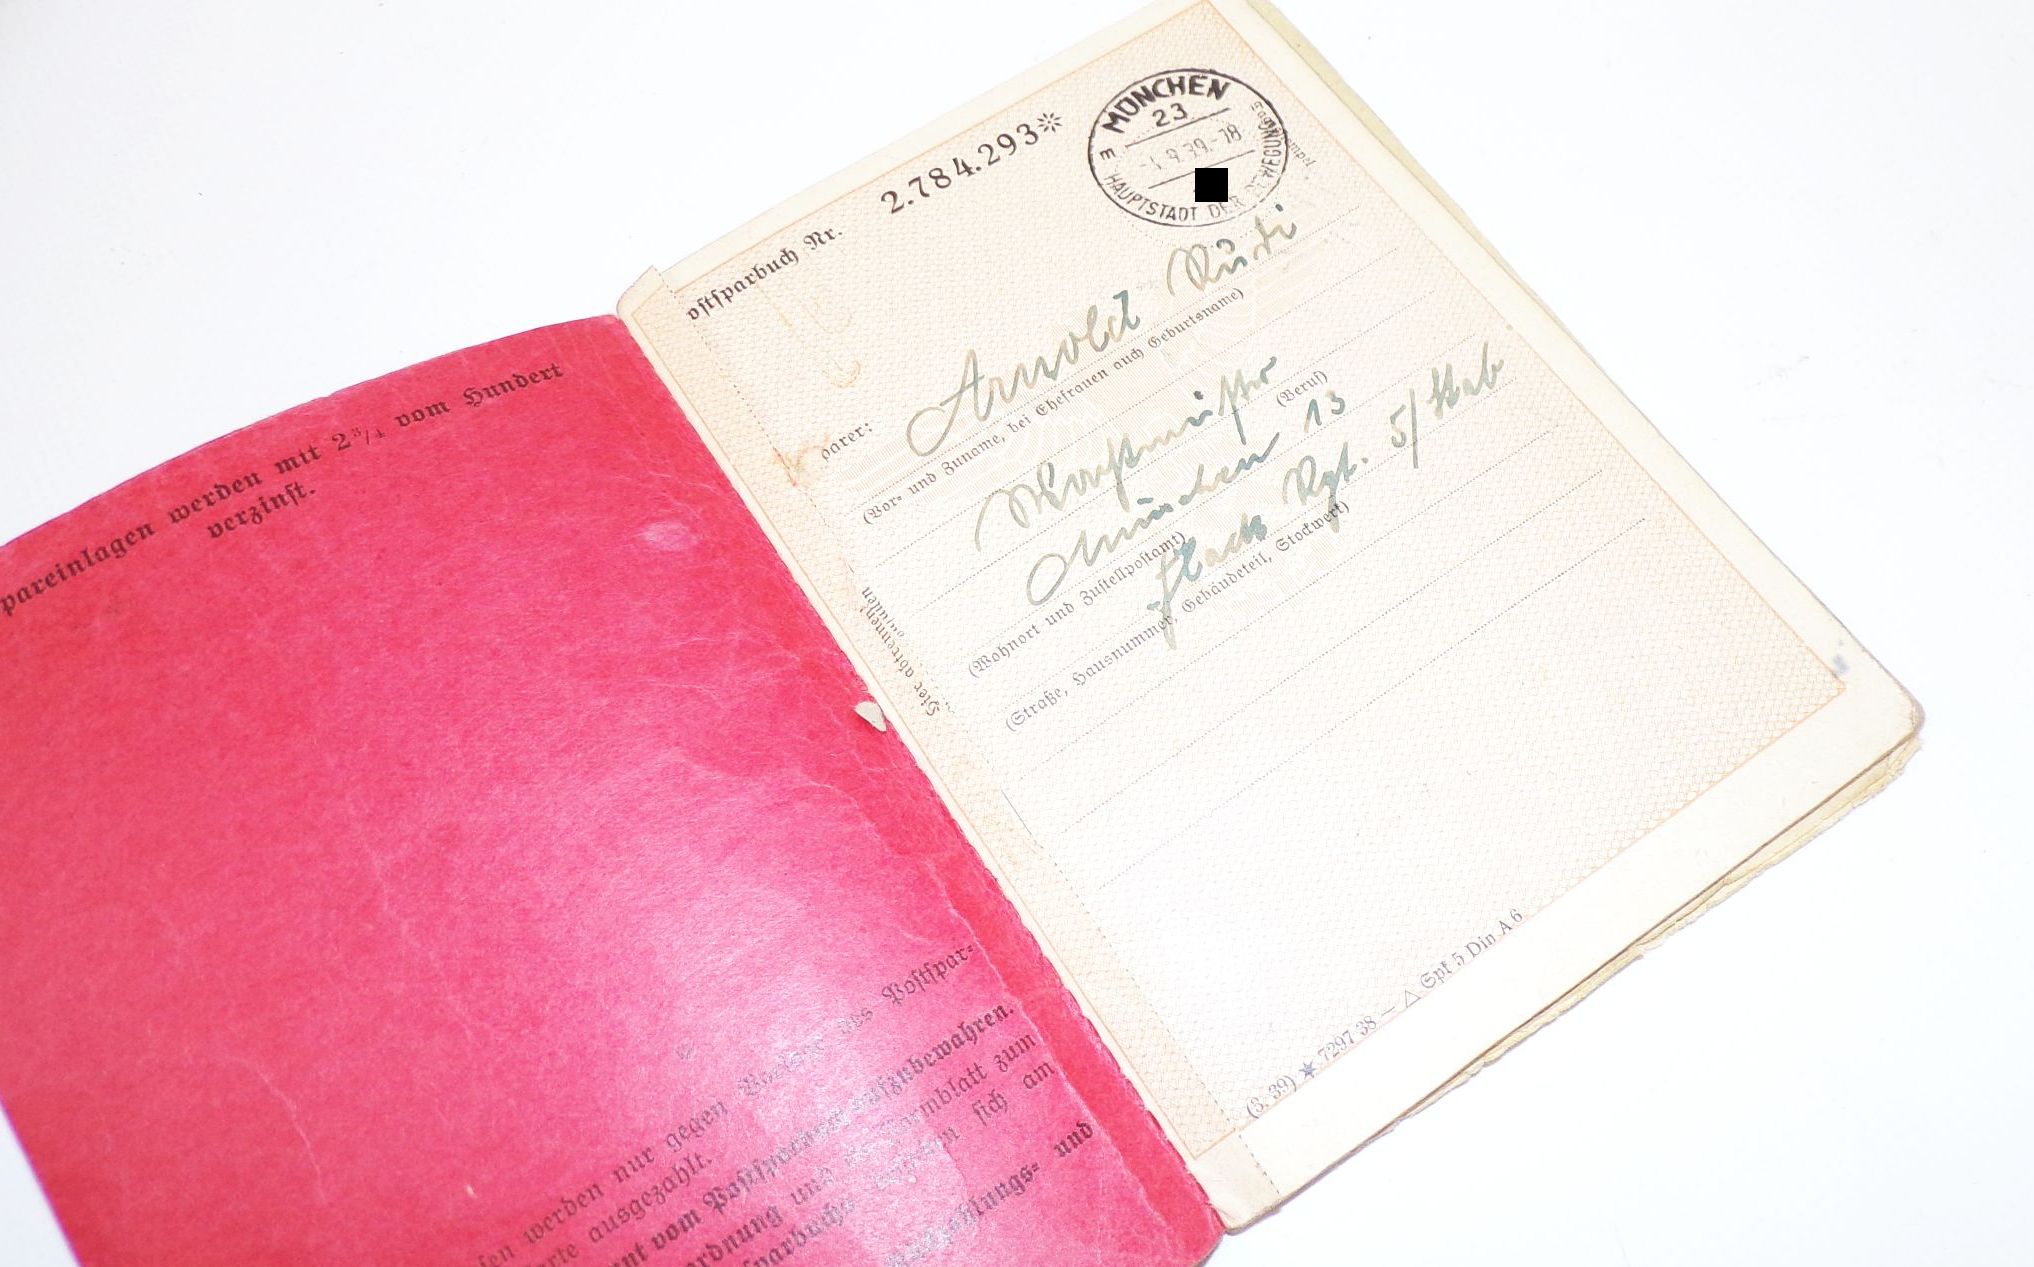 pareinlagen werden mit 2 3/4 vom Hundert
verzinst.
werden nur gegen Vorlage des Postspar-
ausgezahlt.
vom Postsparer aufzubewahren.
ordnung und zum
sparbuchs sich am
und
ostsparbuch Nr. 2.784.293*
MÜNCHEN
23
-1.9.39.-18
E
HAUPTSTADT DER BEWEGUNG
parer: Arnold Rudi
(Vor- und Zuname, bei Ehefrauen auch Geburtsname)
Wachtmeister
(Beruf)
München 13
(Wohnort und Zustellpostamt)
Flak Rgt. 5/ Stab
(Straße, Hausnummer, Gebäudeteil, Stockwert)
Hier abtrennen!
(3. 39) ✶ 7297 38 — △ Spk 5 Din A 6